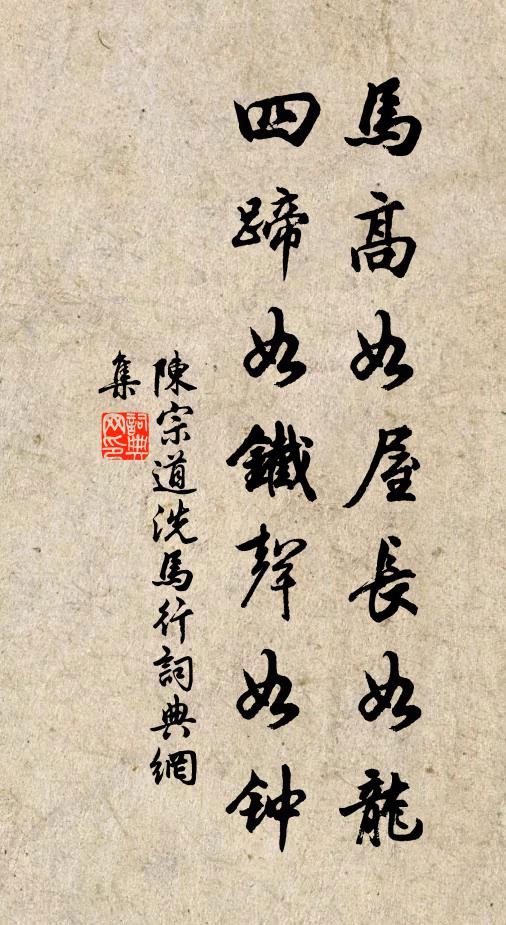 馬高如屋長如龍
四蹄如鐵聲如钟
陳宗道洗馬行詞典網
集
詞典網印